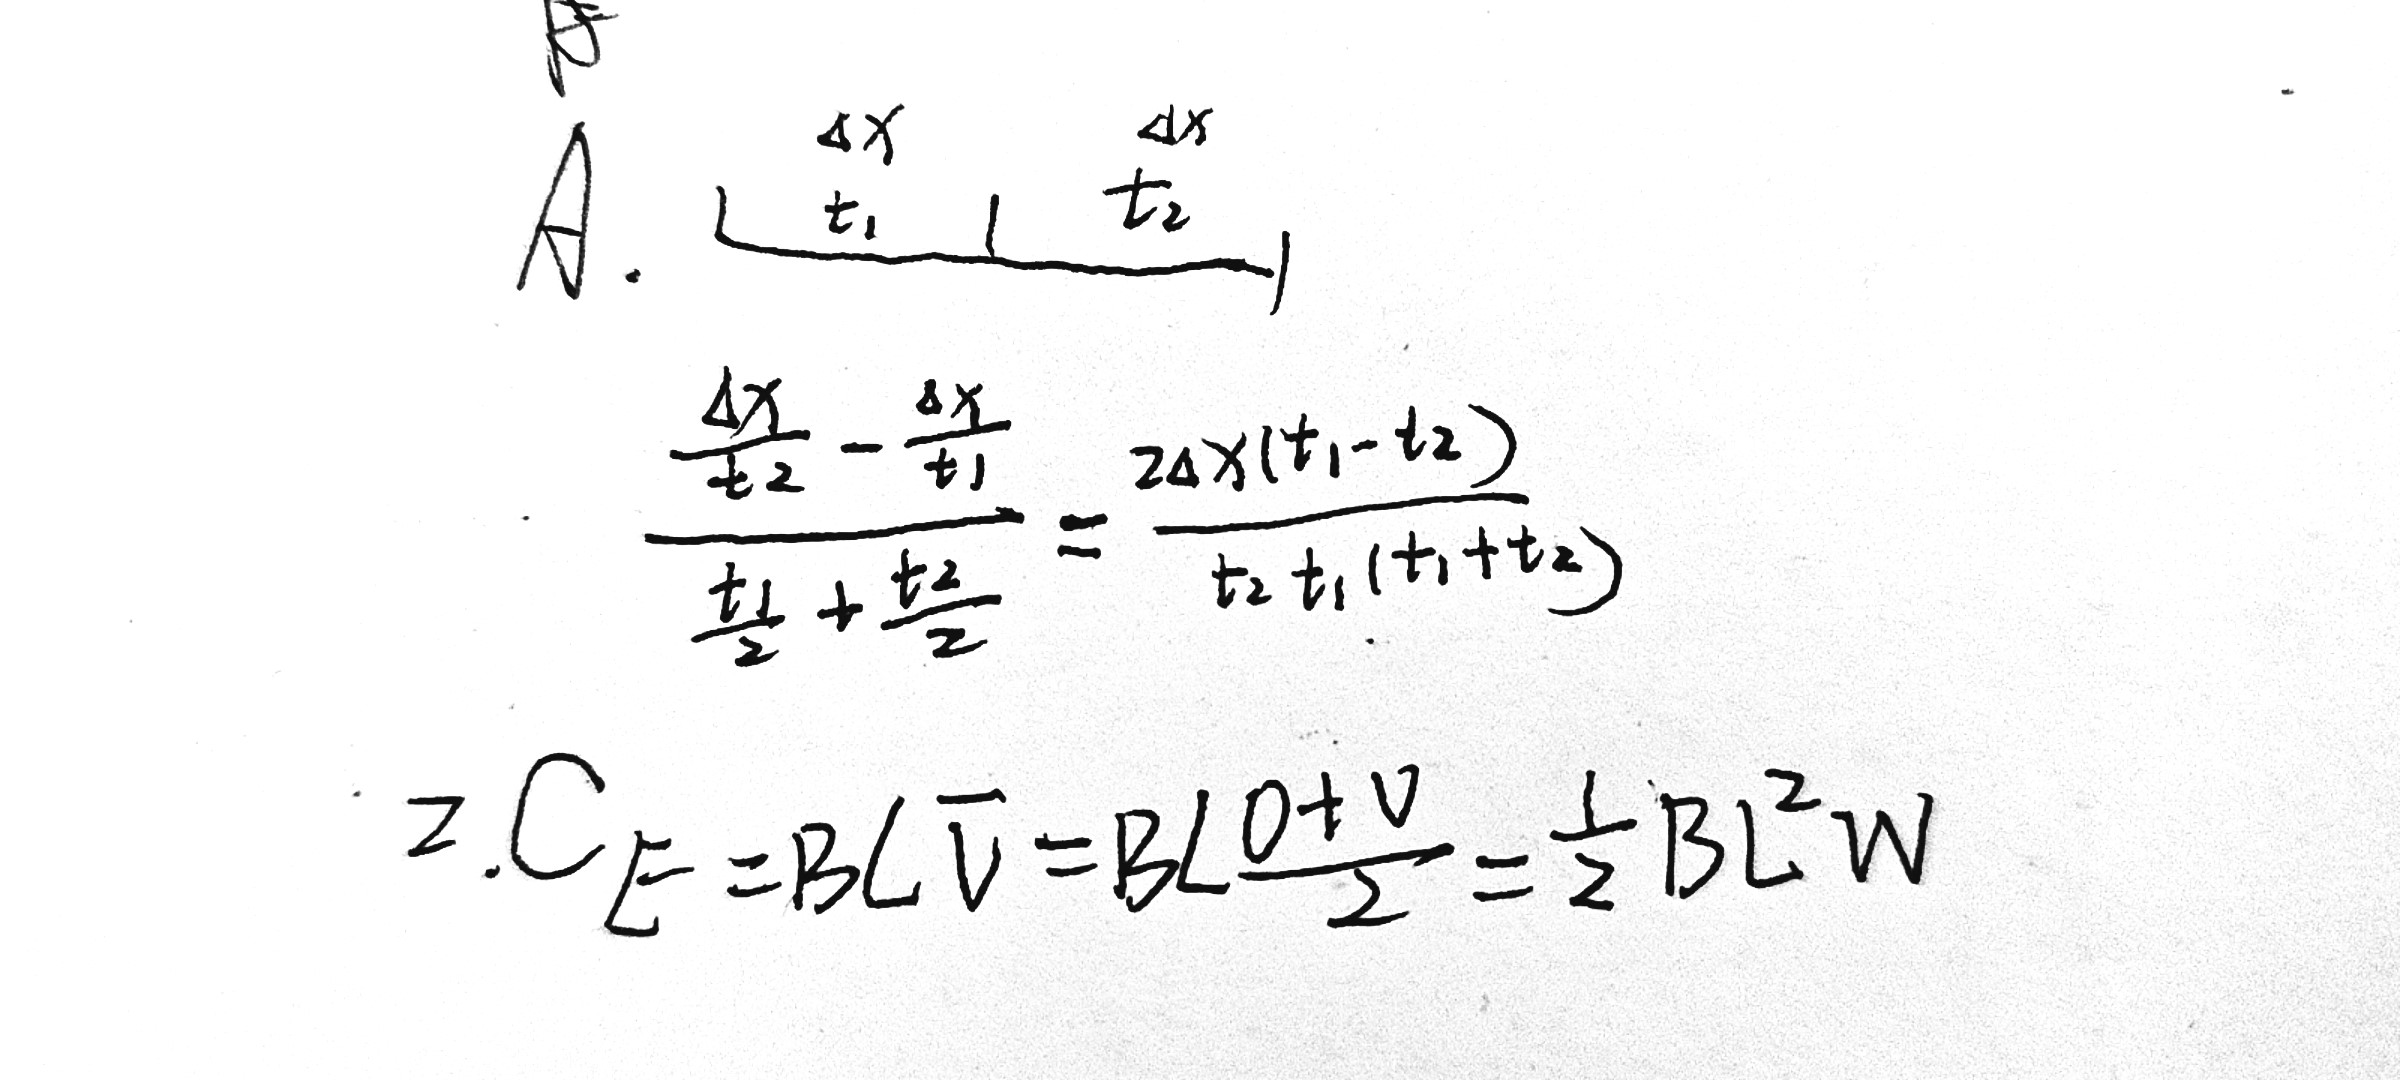 A.
Δx Δx
t₁ t₂
(Δx/t2 - Δx/t1)/(t1/2 + t2/2) = 2Δx(t₁-t₂)/(t₂t₁(t₁+t₂))
2.C E=BLV̅=BL(0+V)/2=1/2BL²W